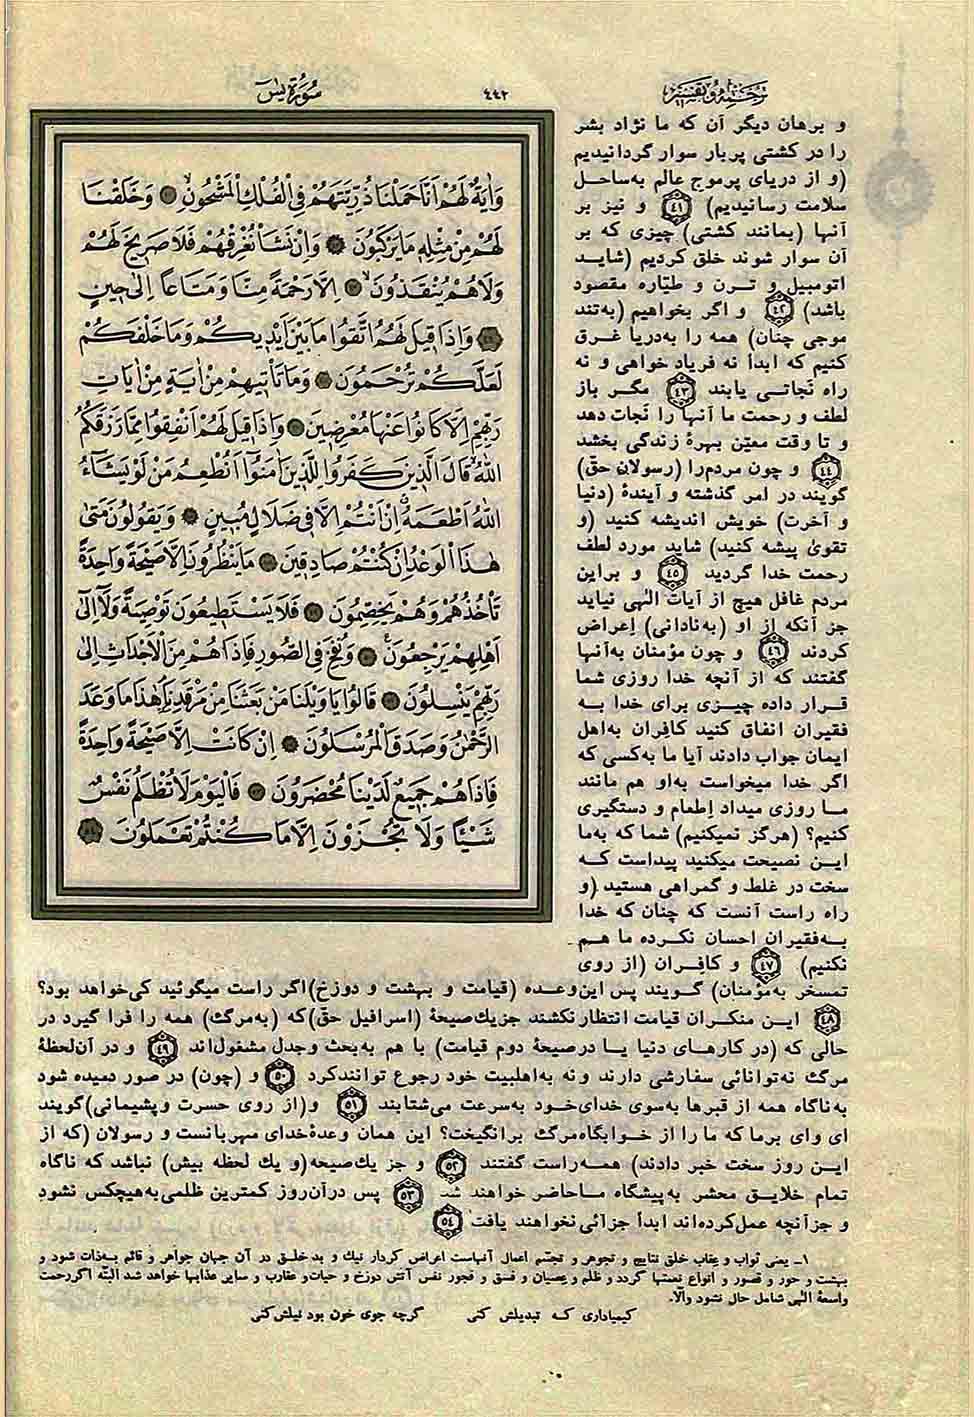 ترجمه و تفسیر
۴۴۲
سُورَةُ يٰسٓ
وَاٰيَةٌ لَهُمْ اَنَّا حَمَلْنَا ذُرِّيَّتَهُمْ فِى الْفُلْكِ الْمَشْحُونِۙ وَخَلَقْنَا
لَهُمْ مِنْ مِثْلِهِ مَا يَرْكَبُونَ وَاِنْ نَشَأْ نُغْرِقْهُمْ فَلَا صَرِيخَ لَهُمْ
وَلَا هُمْ يُنْقَذُونَۙ اِلَّا رَحْمَةً مِنَّا وَمَتَاعاً اِلٰى حِينٍ
وَاِذَا قِيلَ لَهُمُ اتَّقُوا مَا بَيْنَ اَيْدِيكُمْ وَمَا خَلْفَكُمْ
لَعَلَّكُمْ تُرْحَمُونَ وَمَا تَأْتِيهِمْ مِنْ اٰيَةٍ مِنْ اٰيَاتِ
رَبِّهِمْ اِلَّا كَانُوا عَنْهَا مُعْرِضِينَ وَاِذَا قِيلَ لَهُمْ اَنْفِقُوا مِمَّا رَزَقَكُمُ
اللّٰهُۙ قَالَ الَّذِينَ كَفَرُوا لِلَّذِينَ اٰمَنُوا اَنُطْعِمُ مَنْ لَوْ يَشَاۤءُ
اللّٰهُ اَطْعَمَهُۗ اِنْ اَنْتُمْ اِلَّا فِى ضَلَالٍ مُبِينٍ وَيَقُولُونَ مَتٰى
هٰذَا الْوَعْدُ اِنْ كُنْتُمْ صَادِقِينَ مَا يَنْظُرُونَ اِلَّا صَيْحَةً وَاحِدَةً
تَأْخُذُهُمْ وَهُمْ يَخِصِّمُونَ فَلَا يَسْتَطِيعُونَ تَوْصِيَةً وَلَا اِلٰى
اَهْلِهِمْ يَرْجِعُونَ وَنُفِخَ فِى الصُّورِ فَاِذَا هُمْ مِنَ الْاَجْدَاثِ اِلٰى
رَبِّهِمْ يَنْسِلُونَ قَالُوا يَا وَيْلَنَا مَنْ بَعَثَنَا مِنْ مَرْقَدِنَا هٰذَا مَا وَعَدَ
الرَّحْمٰنُ وَصَدَقَ الْمُرْسَلُونَ اِنْ كَانَتْ اِلَّا صَيْحَةً وَاحِدَةً
فَاِذَا هُمْ جَمِيعٌ لَدَيْنَا مُحْضَرُونَ فَالْيَوْمَ لَا تُظْلَمُ نَفْسٌ
شَيْئاً وَلَا تُجْزَوْنَ اِلَّا مَا كُنْتُمْ تَعْمَلُونَ
و برهان دیگر آن که ما نژاد بشر
را در کشتی پربار سوار گردانیدیم
(و از دریای پرموج عالم به‌ساحل
سلامت رسانیدیم) ۴۱ و نیز بر
آنها (بمانند کشتی) چیزی که بر
آن سوار شوند خلق کردیم (شاید
اتومبیل و ترن و طیّاره مقصود
باشد) ۴۲ و اگر بخواهیم (به‌تند
موجی چنان) همه را به‌دریا غرق
کنیم که ابداً نه فریاد خواهی و نه
راه نجاتی یابند ۴۳ مگر باز
لطف و رحمت ما آنها را نجات دهد
و تا وقت معیّن بهرهٔ زندگی بخشد
۴۴ و چون مردم‌را (رسولان حقّ)
گویند در امر گذشته و آیندهٔ (دنیا
و آخرت) خویش اندیشه کنید (و
تقویٰ پیشه کنید) شاید مورد لطف
رحمت خدا گردید ۴۵ و براین
مردم غافل هیچ از آیات الٰهی نیاید
جز آنکه از او (به‌نادانی) اِعراض
کردند ۴۶ و چون مؤمنان به‌آنها
گفتند که از آنچه خدا روزی شما
قرار داده چیزی برای خدا به
فقیران انفاق کنید کافِران به‌اهل
ایمان جواب دادند آیا ما به‌کسی که
اگر خدا میخواست به‌او هم مانند
ما روزی میداد اِطعام و دستگیری
کنیم؟ (هرگز نمیکنیم) شما که به‌ما
این نصیحت میکنید پیداست که
سخت در غلط و گمراهی هستید (و
راه راست آنست که چنان که خدا
به‌فقیران احسان نکرده ما هم
نکنیم) ۴۷ و کافِران (از روی
تمسخر به‌مؤمنان) گویند پس این‌وعده (قیامت و بهشت و دوزخ)اگر راست میگوئید کی‌خواهد بود؟
۴۸ این منکران قیامت انتظار نکشند جزیك‌صیحهٔ (اسرافیل حق)که (به‌مرگ) همه را فرا گیرد در
حالی که (در کارهای دنیا یا درصیحهٔ دوم قیامت) با هم به‌بحث وجدل مشغول‌اند ۴۹ و در آن‌لحظهٔ
مرگ نه‌توانائی سفارشی دارند و نه به‌اهلبیت خود رجوع توانندکرد ۵۰ و (چون) در صور دمیده شود
به‌ناگاه همه از قبرها به‌سوی خدای‌خود به‌سرعت می‌شتابند ۵۱ و(از روی حسرت وپشیمانی)گویند
ای وای برما که ما را از خوابگاه‌مرگ برانگیخت؟ این همان وعدهٔ‌خدای مهربانست و رسولان (که از
این روز سخت خبر دادند) همه‌راست گفتند ۵۲ و جز یك‌صیحه(و یك لحظه بیش) نباشد که ناگاه
تمام خلایق محشر به‌پیشگاه ماحاضر خواهند شد ۵۳ پس درآن‌روز کمترین ظلمی‌به‌هیچکس نشود
و جزآنچه عمل‌کرده‌اند ابداً جزائی نخواهند یافت ۵۴
۱ـ یعنی ثواب و عِقاب خلق نتایج و تجوهر و تجسّم اعمال آنهاست اعراض کردار نیك و بد خلق در آن جهان جواهر و قائم به‌ذات شود و
بهشت و حور و قصور و انواع نعمتها گردد و ظلم و عِصیان و فسق و فجور نفس آتش دوزخ و حیات و عقارب و سایر عذابها خواهد شد البتّه اگر رحمت
واسعهٔ الٰهی شامل حال نشود والّا.
کیمیاداری که تبدیلش کنی گرچه جوی خون بود نیلش‌کنی